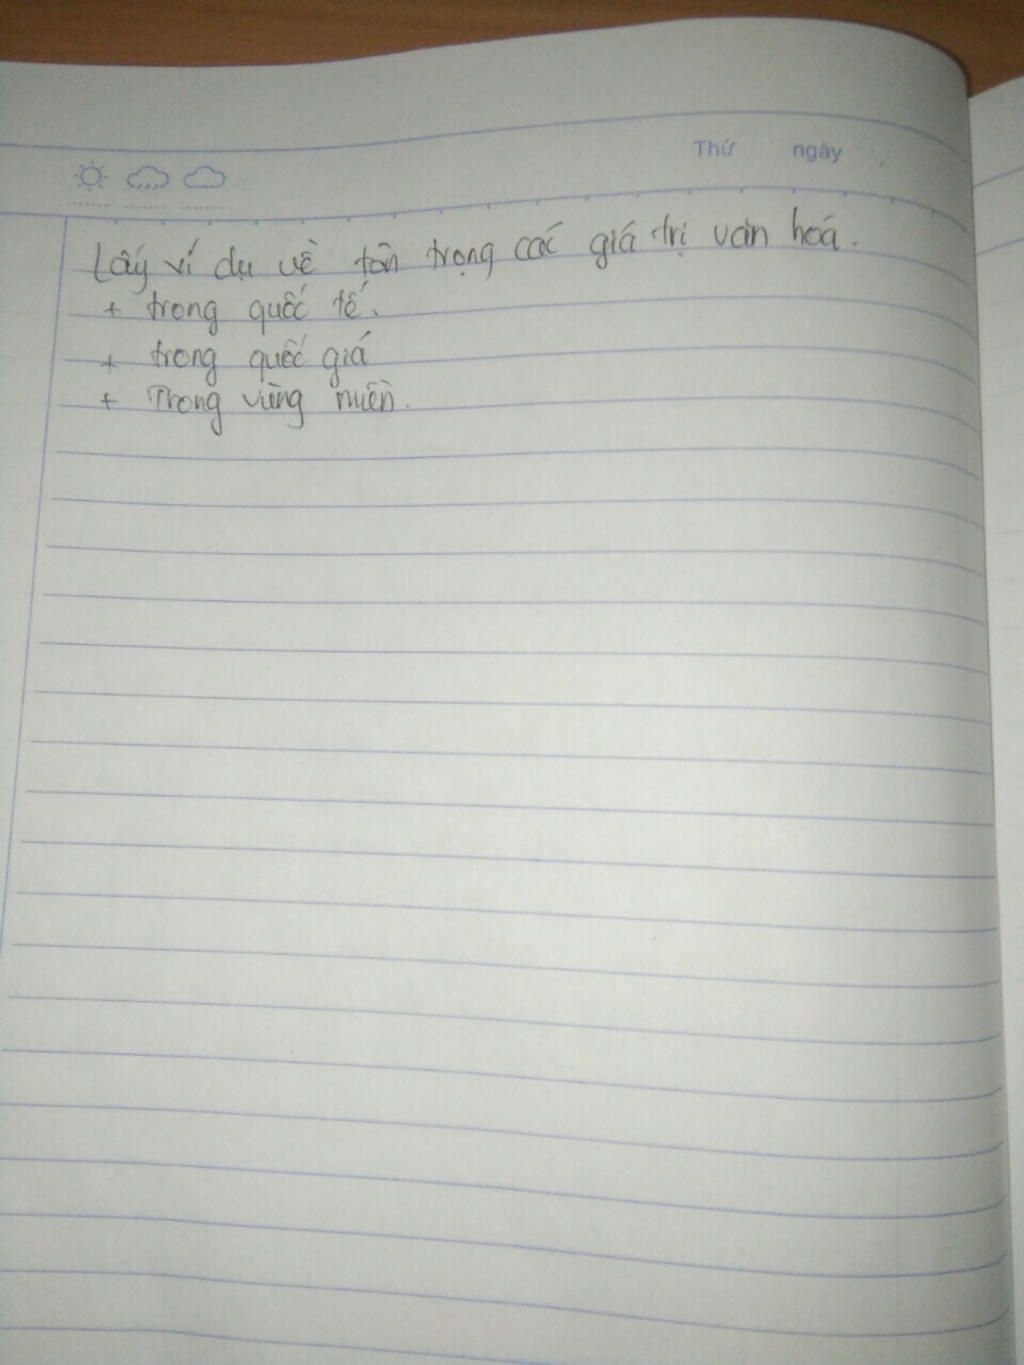 Thứ ngày
Lấy ví dụ về tôn trọng các giá trị văn hoá.
+ trong quốc tế.
+ trong quốc giá
+ Trong vùng miền.